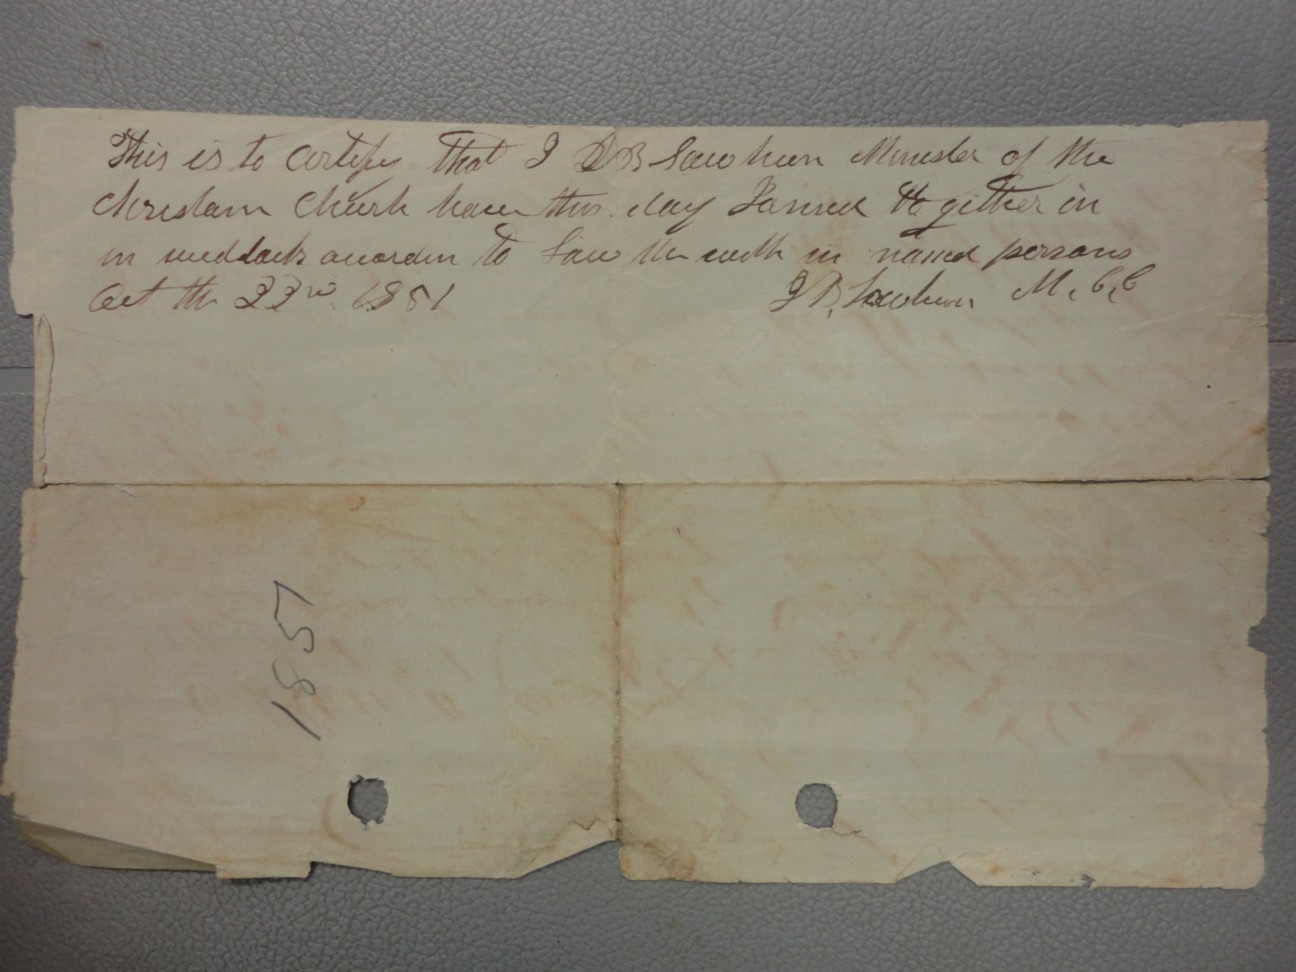 This is to certify that I Minister of the
Christain Church have this day Joined together in
in weddlock accordin to Law the with in named persons
Oct the 23rd 1851
J B M. C. C
1851